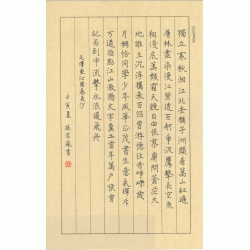 獨立寒秋湘江北去橘子洲頭看萬山紅遍
層林盡染漫江碧透百舸爭流鷹擊長空魚
翔淺底萬類霜天競自由悵寥廓問蒼茫大
地誰主沉浮攜來百侶曾游憶往昔崢嶸歲
月稠恰同學少年風華正茂書生意氣揮斥
方遒指點江山激揚文字糞土當年萬户侯曾
記否到中流擊水浪遏飛舟
毛澤東沁園春長沙
壬寅夏 書